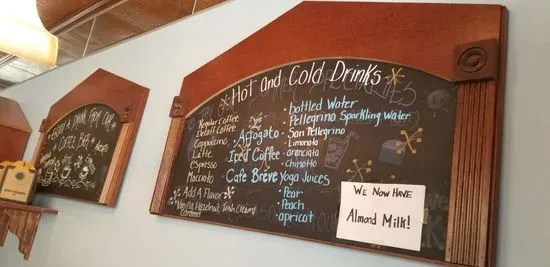 Hot and Cold Drinks
Regular Coffee
Decaff Coffee
Cappucino
Latte
Espresso
Macciato
Add A Flavor
Vanilla, Hazelnut, Irish Cream,
Caramel
Affogato
Iced Coffee
Cafe Breve
• bottled Water
• Pellegrino Sparkling Water
• San Pellegrino
• Limonata
• aranciata
• Chinotto
Yoga Juices
• Pear
• Peach
• apricot
We Now Have
Almond Milk!
Enjoy A Drink From Our
Coffee Bar